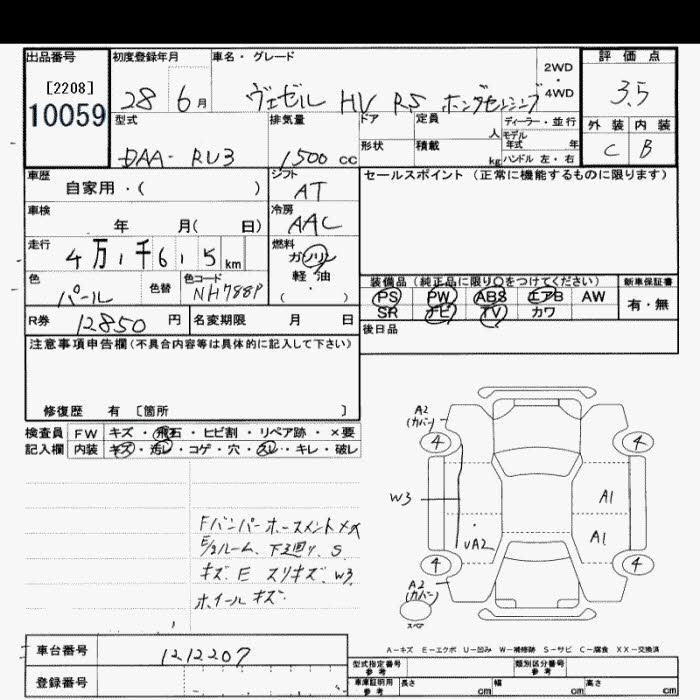 出品番号
[2208]
10059
初度登録年月
28 6月
車名・グレード
ヴェゼル HV RS ホンダセンシング
2WD
・
4WD
評価点
3.5
外装 内装
C B
型式
DAA- RU3
排気量
1500 cc
ドア
形状
定員
人
積載
kg
ディーラー・並行
モデル
年式 年
ハンドル 左・右
車歴
自家用・( )
シフト
AT
セールスポイント (正常に機能するものに限ります)
車検
年 月( 日)
冷房
AAC
走行
4万1千615km
燃料
ガソリン
軽油
( ・ )
色
パール
色替
色コード
NH788P
装備品(純正品に限り○をつけてください)
PS PW ABS エアB AW
SR ナビ TV カワ
新車保証書
有・無
R券 12850 円
名変期限 月 日
後日品
注意事項申告欄(不具合内容等は具体的に記入して下さい)
修復歴 有 〔箇所 〕
検査員
記入欄
FW キズ・飛石・ヒビ割・リペア跡・×要
内装 キズ・汚レ・コゲ・穴・スレ・キレ・破レ
Fバンパーホースメントメ
E/2ルーム、下廻り、S
キズ E スリキズ W3
ホイールキズ
A2
(カバー)
4 4
W3
A1
A1
UA2
4 4
A2
(カバー)
スペア
A-キズ E-エクボ U-凹み W-補修跡 S-サビ C-腐食 XX-交換済
車台番号 1212207
登録番号
型式指定番号
参考
類別区分番号
参考
車庫証明用
参考
長さ cm 幅 cm 高さ cm